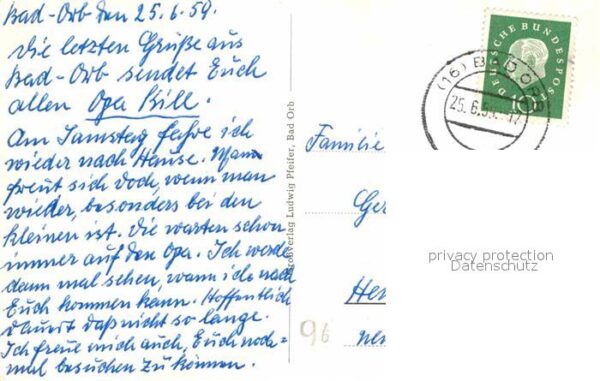 Bad-Orb den 25.6.59.
Die letzten Grüße aus
Bad-Orb sendet Euch
allen Opa Bill.
Am Samstag fahre ich
wieder nach Hause. Mann
freut sich doch, wenn man
wieder, besonders bei den
kleinen ist. Die warten schon
immer auf den Opa. Ich werde
dann mal sehen, wann ich nach
Euch kommen kann. Hoffentlich
dauert daß nicht so lange.
Ich freue mich auch, Euch noch=
mal besuchen zu können.
Großverlag Ludwig Pfeifer, Bad Orb
DEUTSCHE BUNDESPOST
10
(16) BAD ORB
25.6.59.-17
Familie
Ger
Her
96
privacy protection
Datenschutz